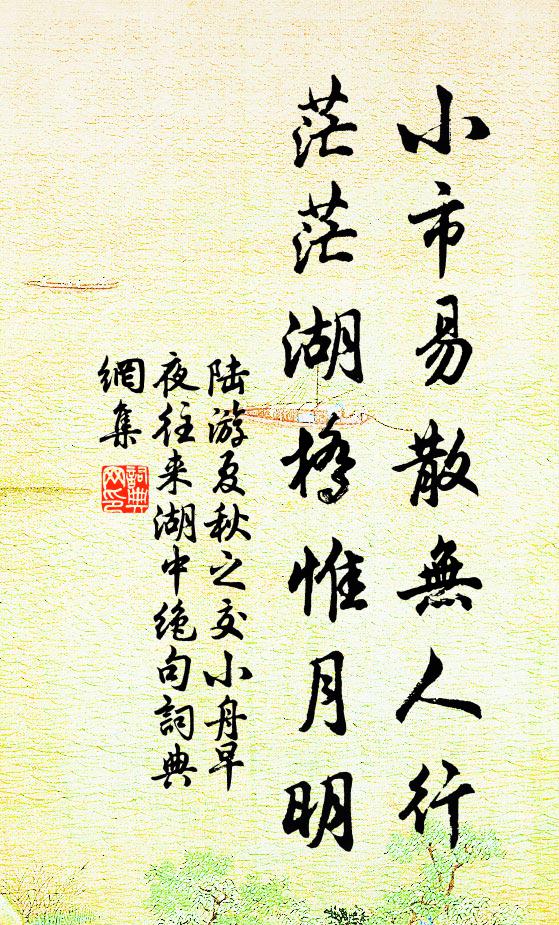 小市易散無人行
茫茫湖橋惟月明
陆游夏秋之交小舟早
夜往来湖中绝句詞典
網集
詞典
网印